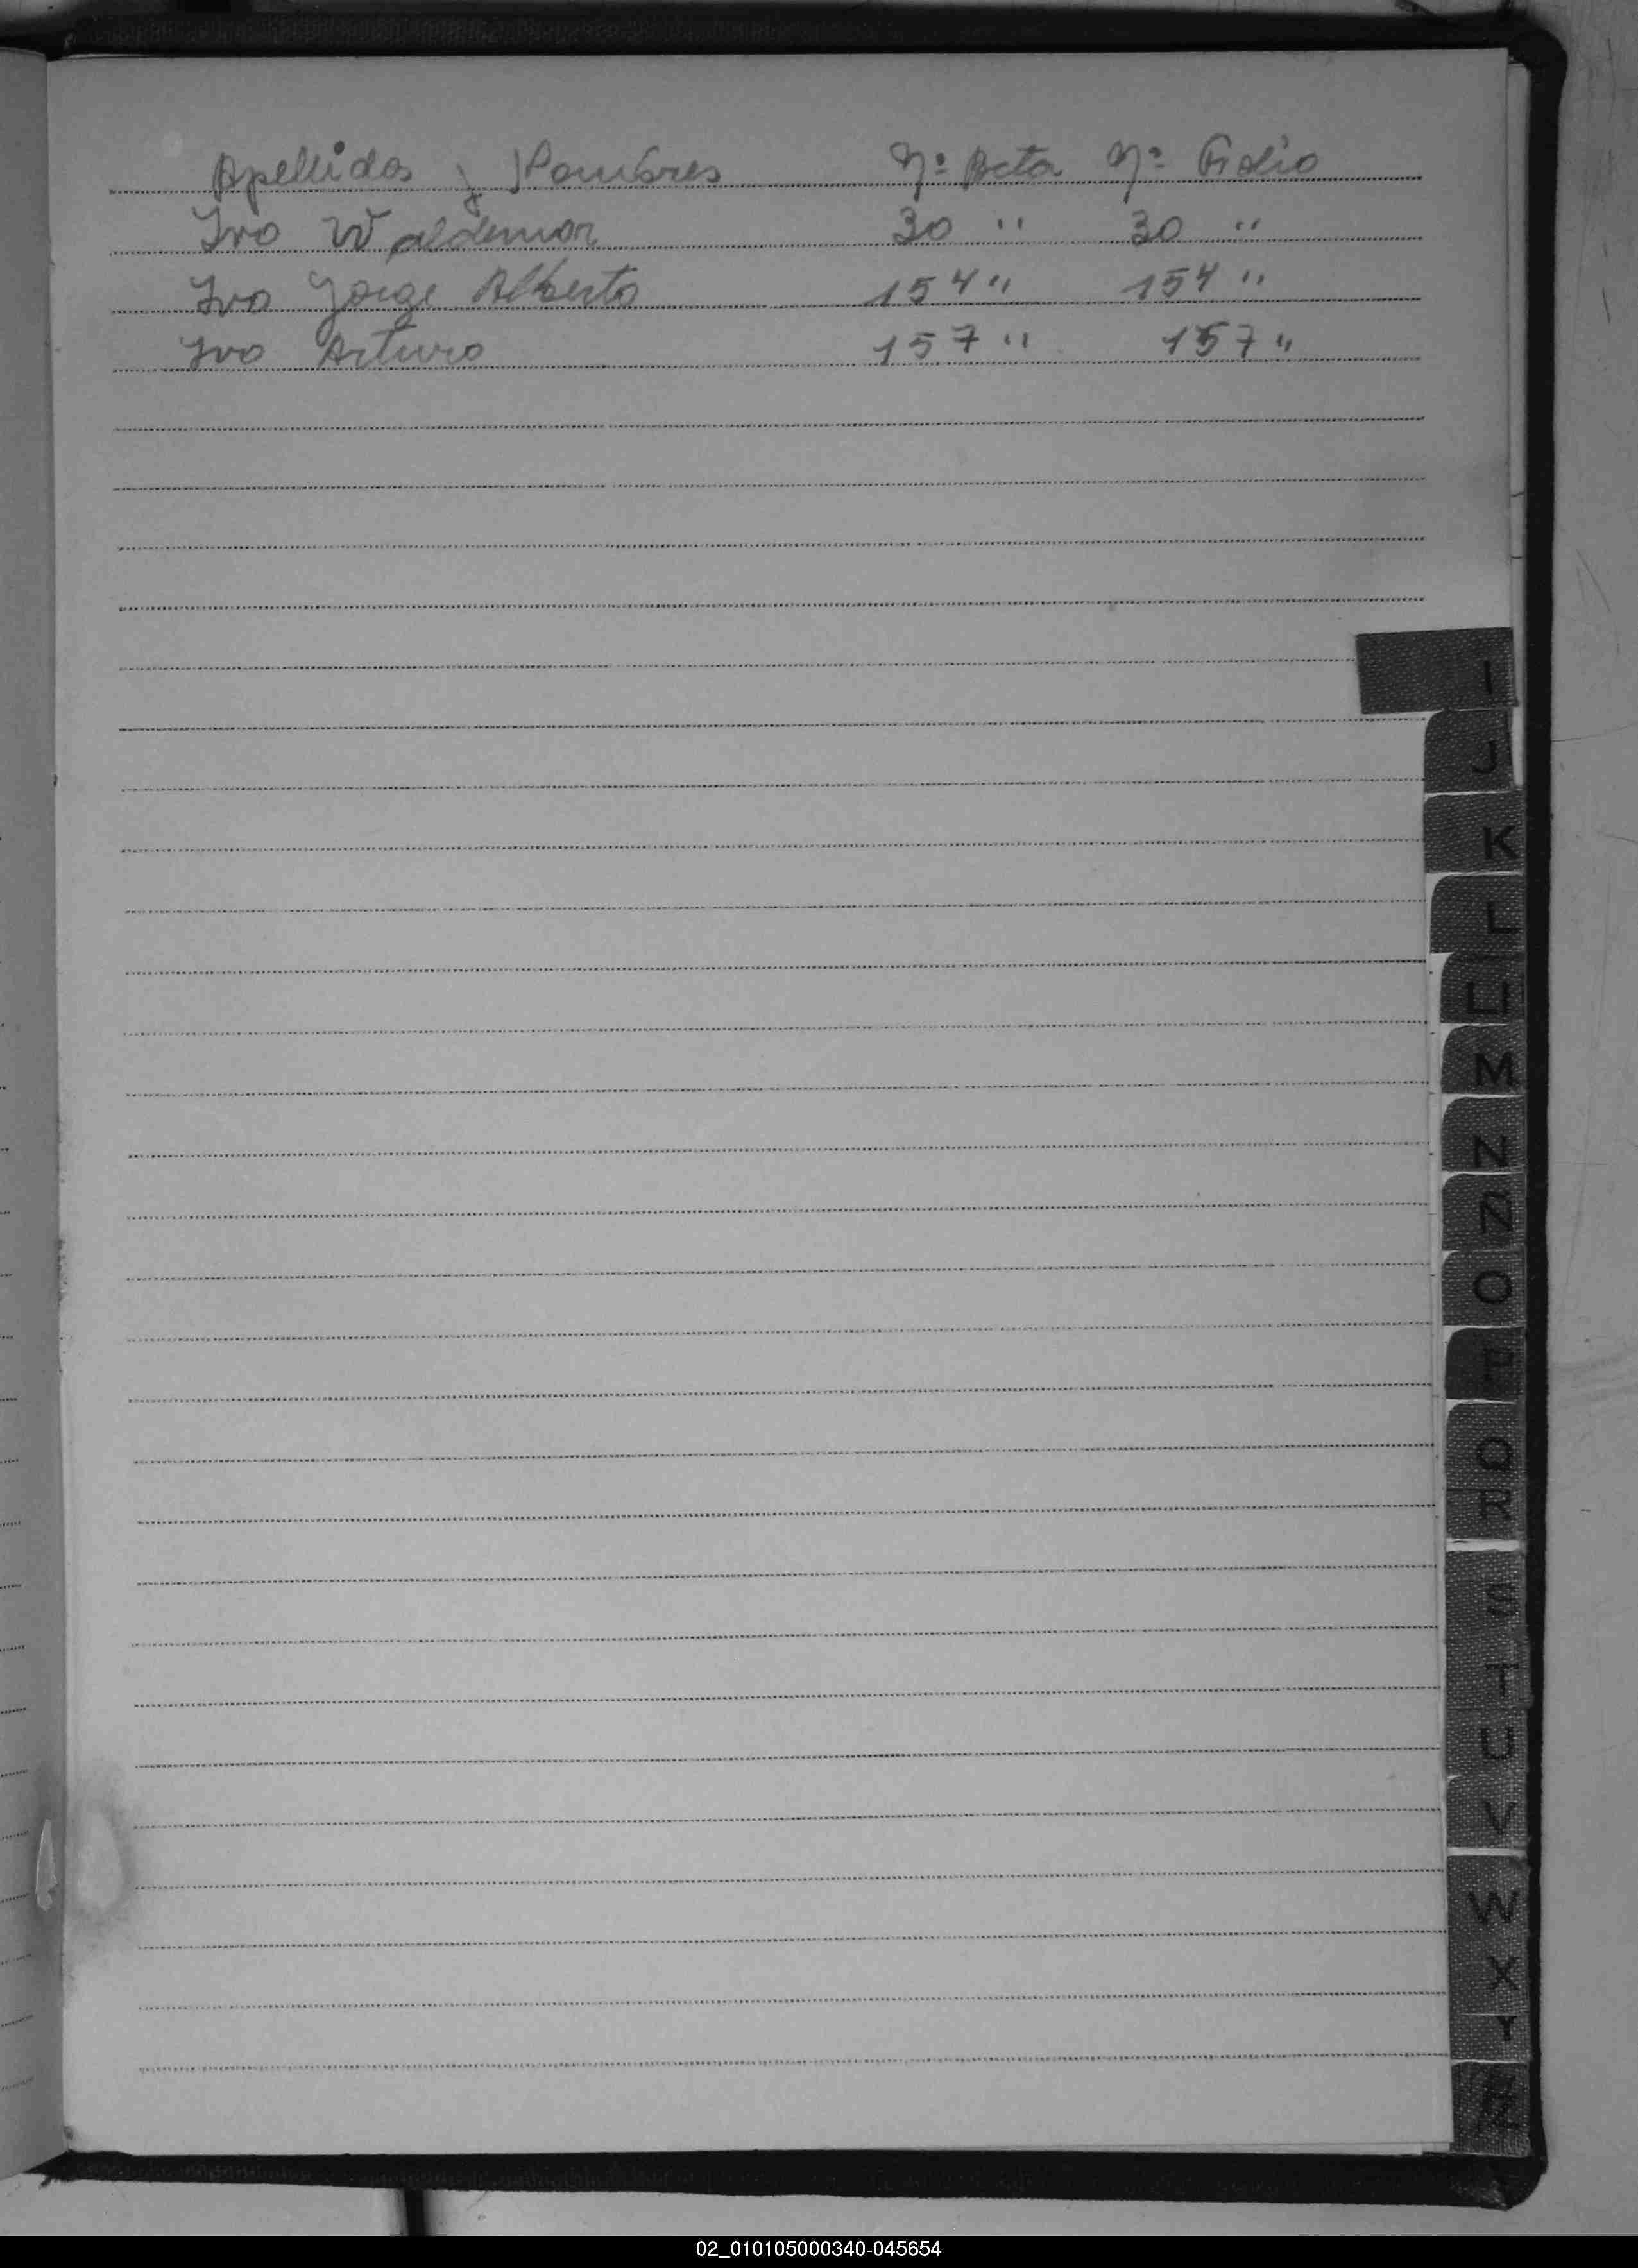 Apellidos y Nombres Nº Acta Nº Folio
Ivo Waldemar 30 " 30 "
Ivo Jorge Alberto 154 " 154 "
Ivo Arturo 157 " 157 "
I
J
K
L
Ll
M
N
Ñ
O
P
Q
R
S
T
U
V
W
X
Y
Z
02_010105000340-045654